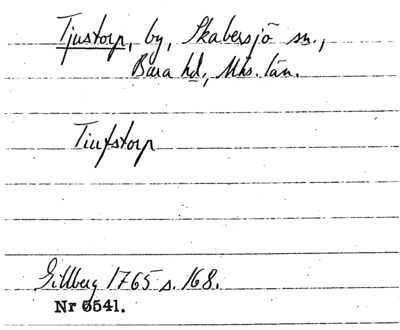 Tjustorp, by, Skabersjö sn.,
Bara hd, Mhs. län.
Tiufstorp
Gillberg 1765 s. 168.
Nr 6541.